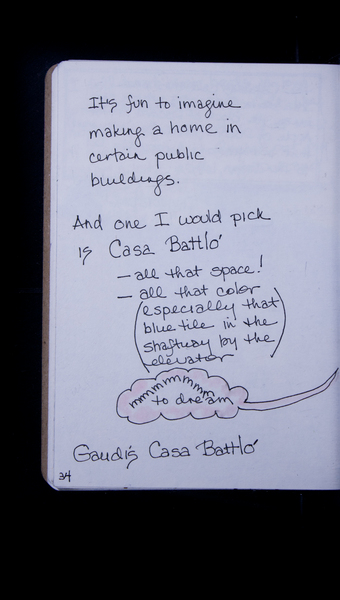 It's fun to imagine
making a home in
certain public
buildings.
And one I would pick
is Casa Battló
– all that space!
– all that color
(especially that
blue tile in the
shaftway by the
elevator)
mmmmmmmm
to dream
Gaudi's Casa Battló
34